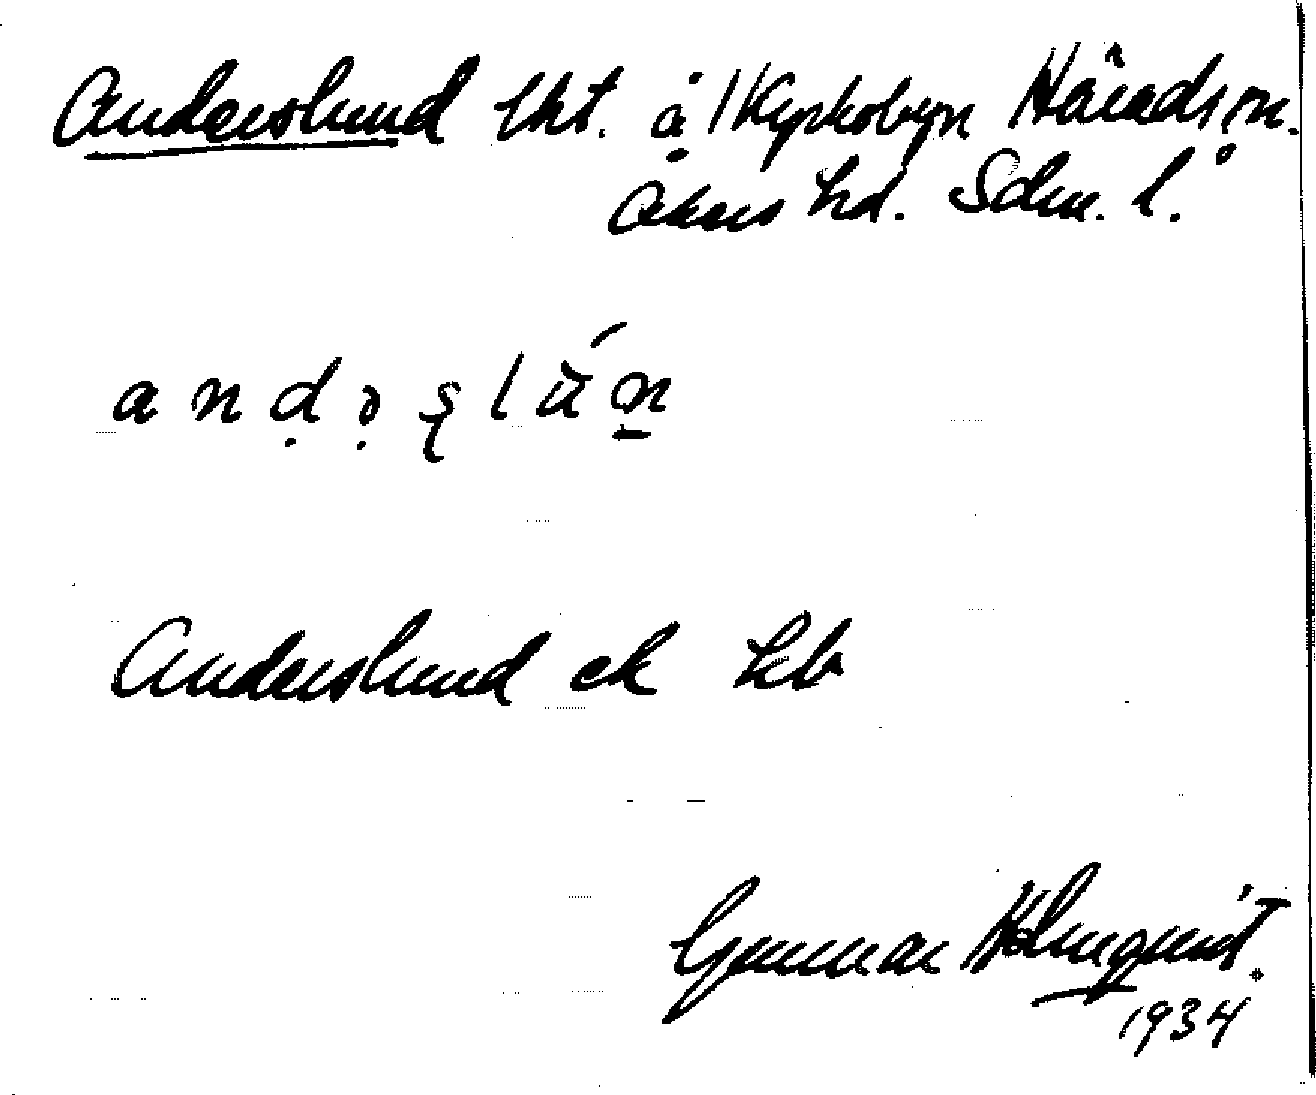 Anderslund lht. å /Kyrkobyn Härads sn.
Åkers hd. Södm. l.
Anderslund ek hb
Gunnar Holmqvist.
1934